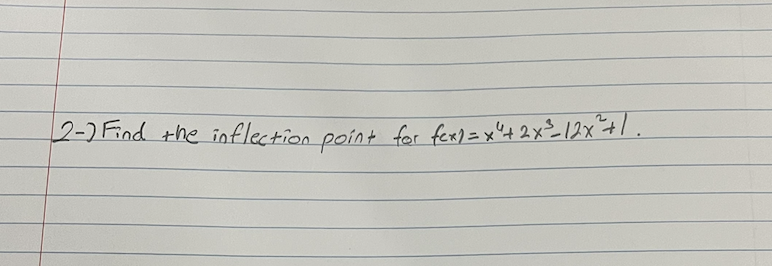 2-) Find the inflection point for f(x) = x⁴ + 2x³ - 12x² + 1.